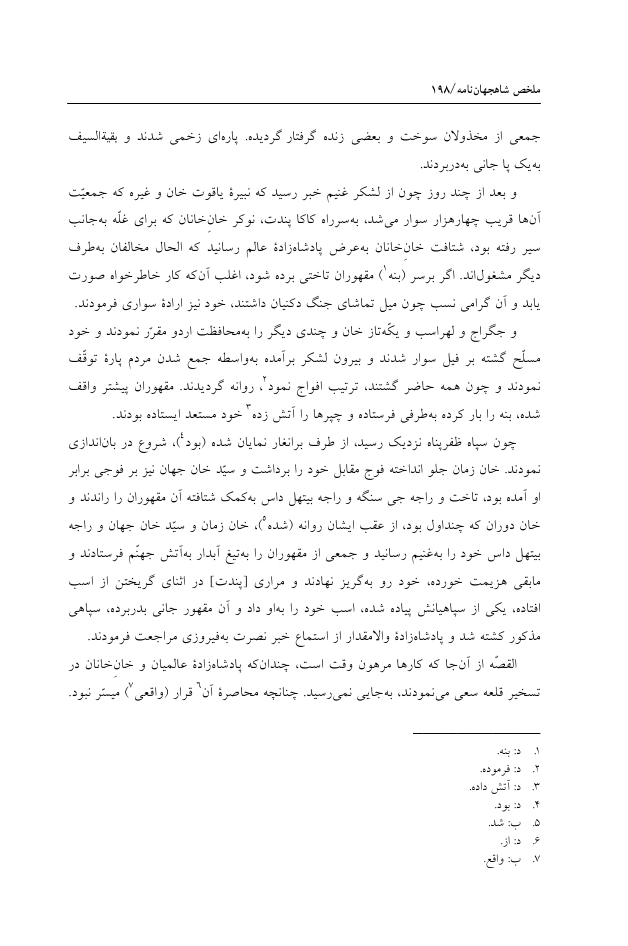 ملخص شاهجهان‌نامه/۱۹۸
جمعی از مخذولان سوخت و بعضی زنده گرفتار گردیده. پاره‌ای زخمی شدند و بقیةالسیف
به‌یک پا جانی به‌دربردند.
و بعد از چند روز چون از لشکر غنیم خبر رسید که نبیرهٔ یاقوت خان و غیره که جمعیّت
آن‌ها قریب چهارهزار سوار می‌شد، به‌سرراه کاکا پندت، نوکر خانِ‌خانان که برای غلّه به‌جانب
سیر رفته بود، شتافت خانِ‌خانان به‌عرض پادشاه‌زادهٔ عالم رسانید که الحال مخالفان به‌طرف
دیگر مشغول‌اند. اگر برسر (بنه۱) مقهوران تاختی برده شود، اغلب آن‌که کار خاطرخواه صورت
یابد و آن گرامی نسب چون میل تماشای جنگ دکنیان داشتند، خود نیز ارادهٔ سواری فرمودند.
و جگراج و لهراسب و یکّه‌تاز خان و چندی دیگر را به‌محافظت اردو مقرّر نمودند و خود
مسلّح گشته بر فیل سوار شدند و بیرون لشکر برآمده به‌واسطه جمع شدن مردم پارهٔ توقّف
نمودند و چون همه حاضر گشتند، ترتیب افواج نمود۲، روانه گردیدند. مقهوران پیشتر واقف
شده، بنه را بار کرده به‌طرفی فرستاده و چپرها را آتش زده۳ خود مستعد ایستاده بودند.
چون سپاه ظفرپناه نزدیک رسید، از طرف برانغار نمایان شده (بود۴)، شروع در بان‌اندازی
نمودند. خان زمان جلو انداخته فوج مقابل خود را برداشت و سیّد خان جهان نیز بر فوجی برابر
او آمده بود، تاخت و راجه جی سنگه و راجه بیتهل داس به‌کمک شتافته آن مقهوران را راندند و
خان دوران که چنداول بود، از عقب ایشان روانه (شده۵)، خان زمان و سیّد خان جهان و راجه
بیتهل داس خود را به‌غنیم رسانید و جمعی از مقهوران را به‌تیغ آبدار به‌آتش جهنّم فرستادند و
مابقی هزیمت خورده، خود رو به‌گریز نهادند و مراری [پندت] در اثنای گریختن از اسب
افتاده، یکی از سپاهیانش پیاده شده، اسب خود را به‌او داد و آن مقهور جانی بدربرده، سپاهی
مذکور کشته شد و پادشاه‌زادهٔ والامقدار از استماع خبر نصرت به‌فیروزی مراجعت فرمودند.
القصّه از آن‌جا که کارها مرهون وقت است، چندان‌که پادشاه‌زادهٔ عالمیان و خانِ‌خانان در
تسخیر قلعه سعی می‌نمودند، به‌جایی نمی‌رسید. چنانچه محاصرهٔ آن۶ قرار (واقعی۷) میسّر نبود.
۱. د: بنه.
۲. د: فرموده.
۳. د: آتش داده.
۴. د: بود.
۵. ب: شد.
۶. د: از.
۷. ب: واقع.